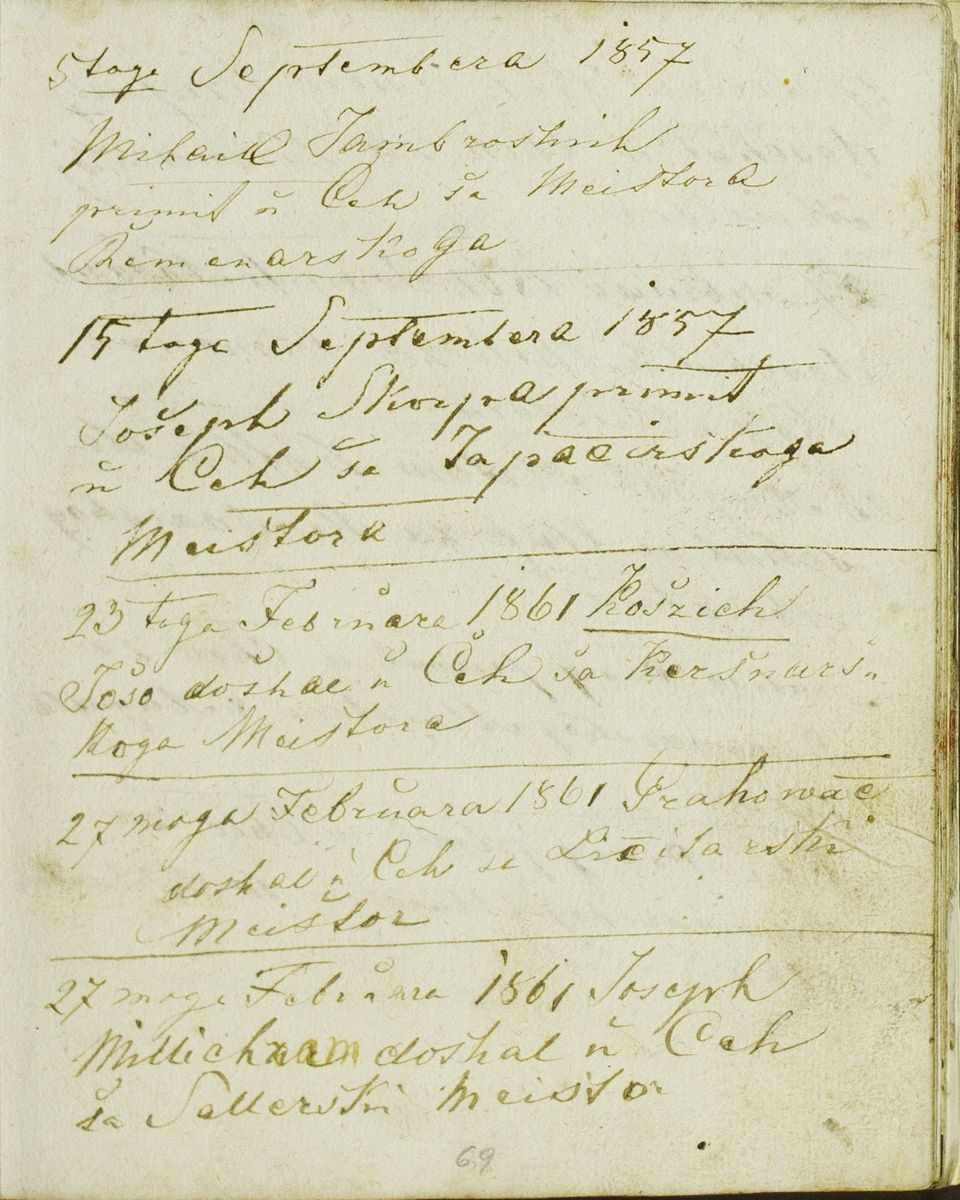 5 toga Septembera 1857
Mihaill Jambroshih
primit ŭ Ceh ša Meištora
Remenarskoga
15 toga Septembera 1857
Jošeph Skorpa primit
ŭ Ceh ša Tapacirskoga
Meištora
23 toga Februara 1861 Košzich
Jošo doshal ŭ Čeh ša Keršnarš„
koga Meištora
27 moga Februara 1861 Prahowač
doshal ŭ Ceh se Licitarski
Meištor
27 moga Februara 1861 Joseph
Millich doshal ŭ Ceh
ša Sellerski Meistor
69